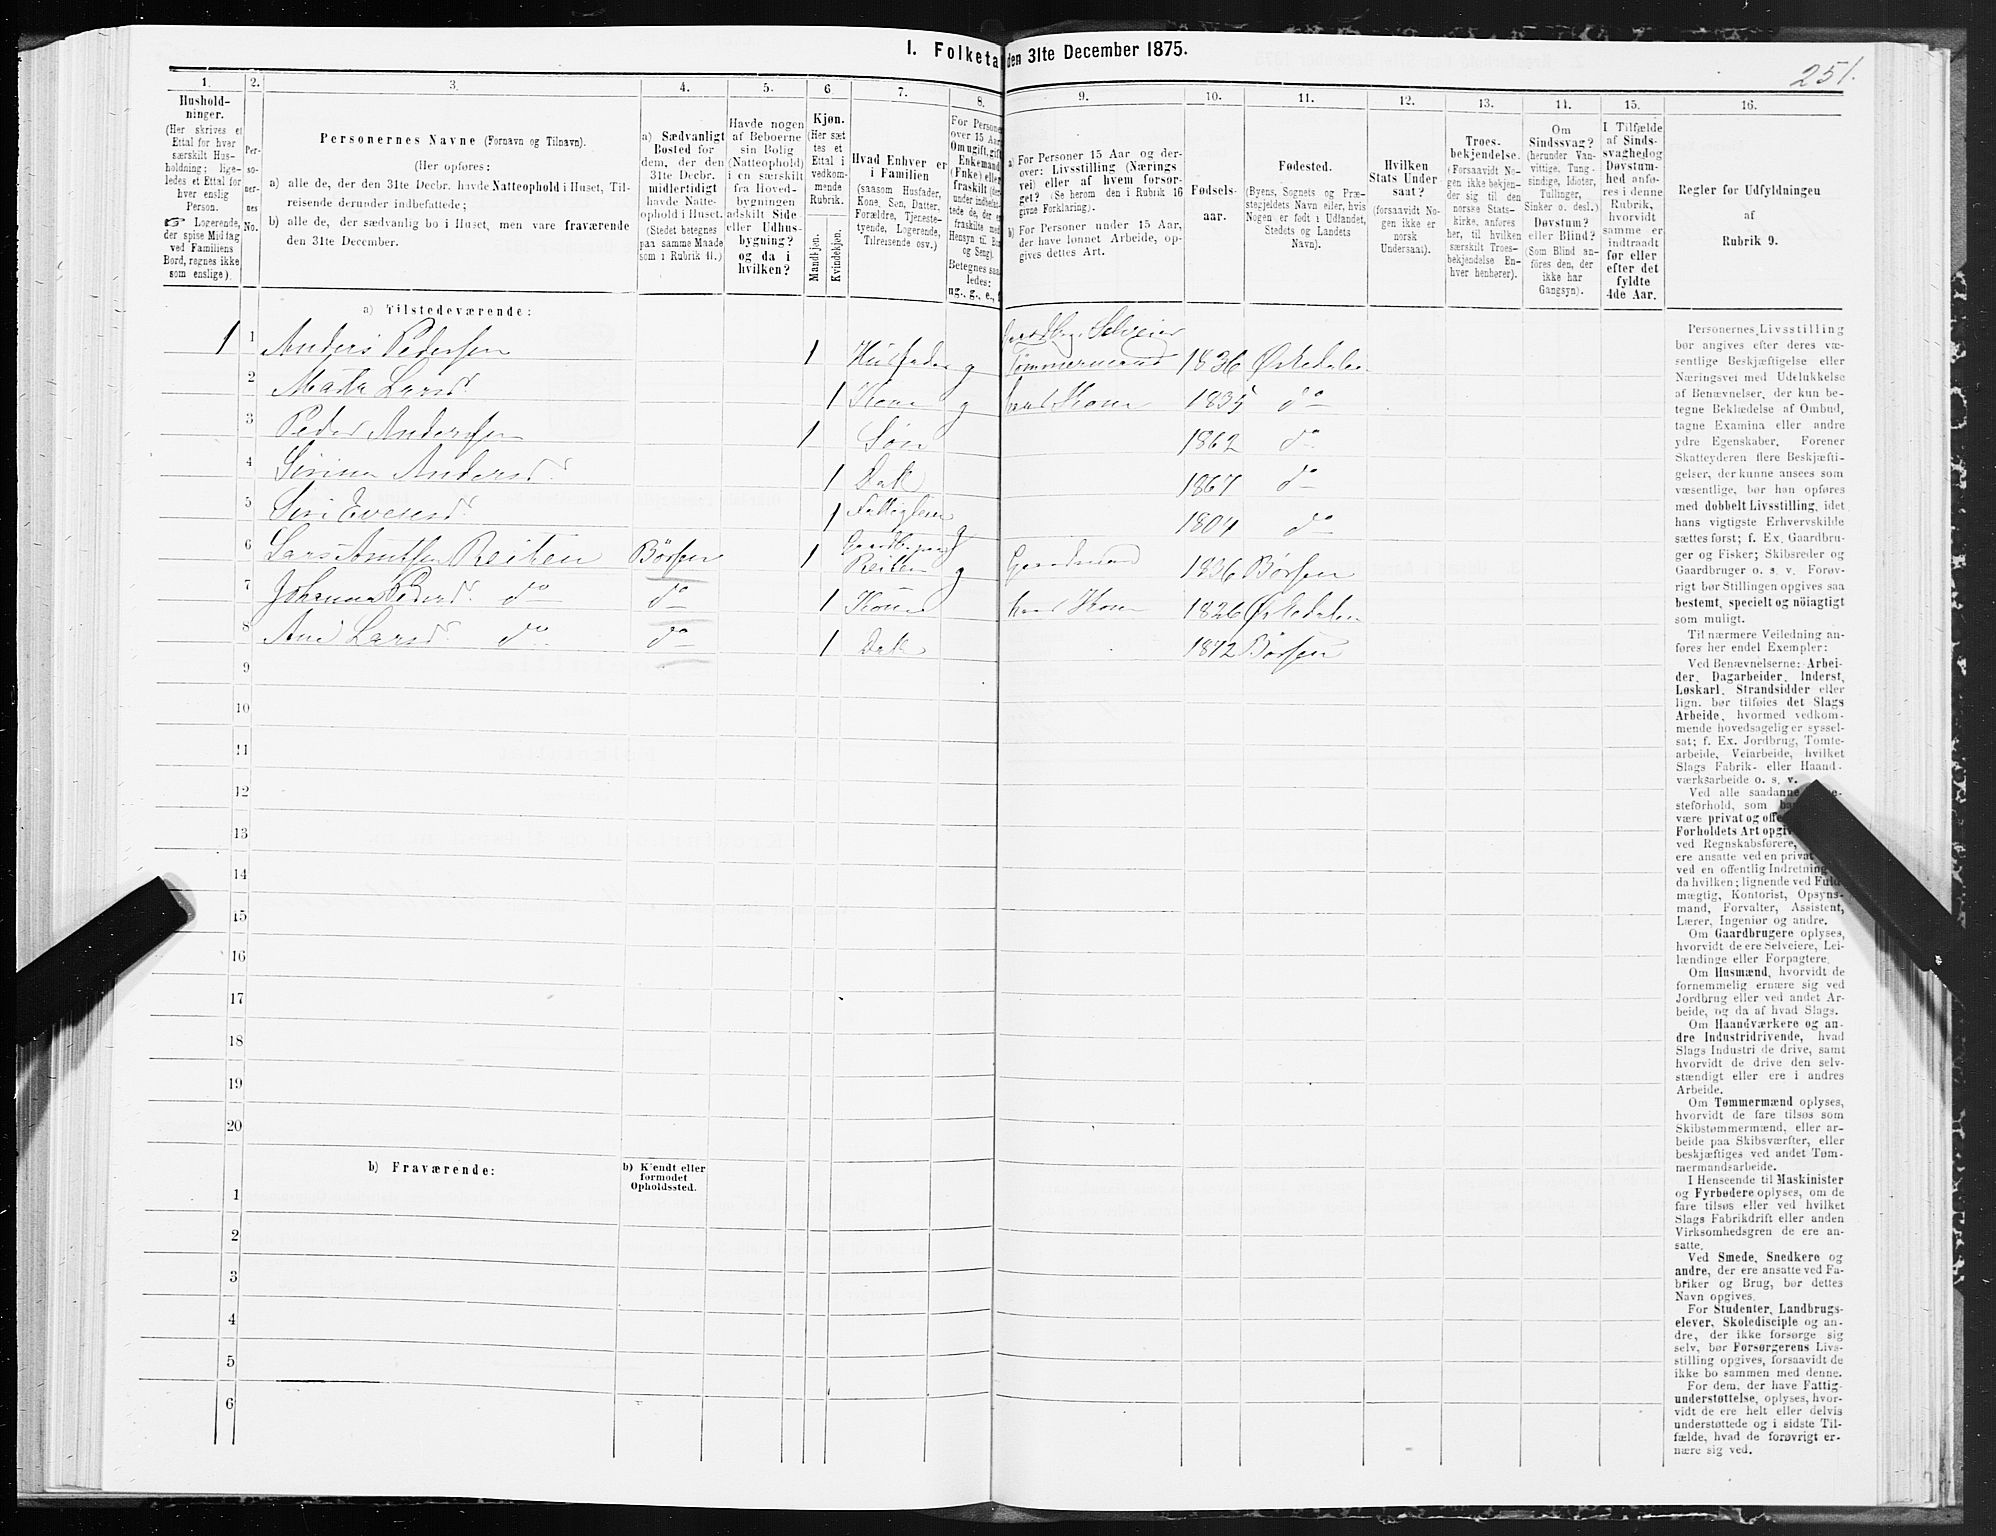 I. Folketa den 31te December 1875.
251.
1.
Hushold-
ninger.
(Her skrives et
Ettal for hver
særskilt Hus-
holdning; lige-
ledes et Ettal for
hver enslig
Person.
☞ Logerende,
der spise Middag
ved Familiens
Bord, regnes ikke
som enslige).
2.
Per-
so-
ner-
nes
No.
3.
Personernes Navne (Fornavn og Tilnavn).
(Her opføres:
a) alle de, der den 31te Decbr. havde Natteophold i Huset, Til-
reisende derunder indbefattede;
b) alle de, der sædvanlig bo i Huset, men vare fraværende
den 31te December.
4.
a) Sædvanligt
Bosted for
dem, der den
31te Decbr.
midlertidigt
havde Natte-
ophold i Huset.
(Stedet betegnes
paa samme Maade
som i Rubrik 11.)
5.
Havde nogen
af Beboerne
sin Bolig
(Natteophold)
i en særskilt
fra Hoved-
bygningen
adskilt Side
eller Udhus-
bygning?
og da i
hvilken?
6
Kjøn.
(Her sæt
tes et
Ettal i
vedkom-
mende
Rubrik.
Mandkjøn.
Kvindekjøn.
7.
Hvad Enhver er
i Familien
(saasom Husfader,
Kone, Søn, Datter,
Forældre, Tjeneste-
tyende, Logerende,
Tilreisende osv.)
8.
For Persone
over 15 Aar
Om ugift, gift
Enkemand
(Enke) eller
fraskilt
Betegnes saa
ledes:
ug., g., e.,
9.
a) For Personer 15 Aar og der-
over: Livsstilling (Nærings
vei) eller af hvem forsør-
get? (Se herom den i Rubrik 16
givne Forklaring).
b) For Personer under 15 Aar,
der have lønnet Arbeide, op-
gives dettes Art.
10.
Fødsels-
aar.
11.
Fødested.
(Byens, Sognets og Præ-
stegjeldets Navn eller, hvis
Nogen er født i Udlandet,
Stedets og Landets
Navn).
12.
Hvilken
Stats Under
saat?
(forsaavidt No-
gen ikke er
norsk
Undersaat).
13.
Troes-
bekjendelse.
(Forsaavidt No-
gen ikke bekjen-
der sig til den
norske Stats-
kirke, anføres
her, til hvilken
særskilt Troes-
bekjendelse En-
hver henhører).
14.
Om
Sindssvag?
(herunder Van-
vittige, Tung-
sindige, Idioter,
Tullinger,
Sinker o. desl.)
Døvstum?
eller Blind?
(Som Blind an-
føres den, der
ikke har
Gangsyn).
15.
I Tilfælde
af Sinds-
svaghed og
Døvstum-
hed anfø-
res i denne
Rubrik,
hvorvidt
samme er
indtraadt
før eller
efter det
fyldte
4de Aar.
16.
Regler for Udfyldningen
af
Rubrik 9.
a) Tilstedeværende:
1 1 Anders Pedersen 1 Husfader g Gaardbr. Selveier Tømmermand 1836 Ørkedalen
2 Marta Larsd. 1 Kone g hans Kone 1835 do
3 Peder Andersen 1 Søn 1862 do
4 Sirina Andersd. 1 Datt 1867 do
5 Siri Evensd. 1 1804 do
6 Lars Arntsen Reiten Børsen 1 Reiten g Gaardmand 1836 Børsen
7 Johanna Pedersd. do do 1 Kone hans Kone 1826 Ørkedalen
8 Ane Larsd. do do 1 Datt 1872 Børsen
9
10
11
12
13
14
15
16
17
18
19
20
b) Fraværende:
b) Kjendt eller
formodet
Opholdssted.
1
2
3
4
5
6
Personernes Livsstilling
bor angives efter deres væ-
sentlige Beskjæftigelse eller
Næringsvei med Udelukkelse
af Benævnelser, der kun be-
tegne Beklædelse af Ombud,
tagne Examina eller andre
ydre Egenskaber. Forener
Skatteyderen flere Beskjæfti-
gelser, der kunne ansees som
væsentlige, bør han opføres
med dobbelt Livsstilling, idet
hans vigtigste Erhvervskilde
sættes først; f. Ex. Gaardbru-
ger og Fisker; Skibsreder og
Gaardbruger o. s. v. Forøv-
rigt bør Stillingen opgives saa
bestemt, specielt og nöiagtigt
som muligt.
Til nærmere Veiledning an-
føres her endel Exempler:
Ved Benævnelserne: Arbei-
der, Dagarbeider, Inderst,
Løskarl, Strandsidder eller
lign. bør tilføies det Slags
Arbeide, hvormed vedkom-
mende hovedsagelig er syssel-
sat; f. Ex. Jordbrug, Tomte-
arbeide, Veiarbeide, hvilket
Slags Fabrik- eller Haand-
værksarbeide o. s. v.
Ved alle saadanne
steforhold, som
være privat og
Forholdets Art
ved Regnskabsførere,
ere ansatte ved en privat
ved en offentlig Indretning
da hvilken; lignende ved Fuld-
mægtig, Kontorist, Opsyns-
mand, Forvalter, Assistent,
Lærer, Ingeniør og andre.
Om Gaardbrugere oplyses,
hvorvidt de ere Selveiere, Lei-
lændinge eller Forpagtere.
Om Husmænd, hvorvidt de
fornemmelig ernære sig ved
Jordbrug eller ved andet Ar-
beide, og da af hvad Slags.
Om Haandværkere og an-
dre Industridrivende, hvad
Slags Industri de drive, samt
hvorvidt de drive den selv-
stændigt eller ere i andres
Arbeide.
Om Tømmermænd oplyses,
hvorvidt de fare tilsøs som
Skibstømmermænd, eller ar-
beide paa Skibsværfter, eller
beskjæftiges ved andet Tøm-
mermandsarbeide.
I Henseende til Maskinister
og Fyrbødere oplyses, om de
fare tilsøs eller ved hvilket
Slags Fabrikdrift eller anden
Virksomhedsgren de ere an-
satte.
Ved Smede, Snedkere og
andre, der ere ansatte ved Fa-
briker og Brug, bør dettes
Navn opgives.
For Studenter, Landbrugs-
elever, Skoledisciple og an-
dre, der ikke forsørge sig
selv, bør Forsørgerens Livs-
stilling opgives, forsaavidt de
ikke bo sammen med denne.
For dem, der have Fattig-
understøttelse, oplyses, hvor-
vidt de ere helt eller delvis
understøttede og i sidste Til-
fælde, hvad de forøvrigt er-
nære sig ved.